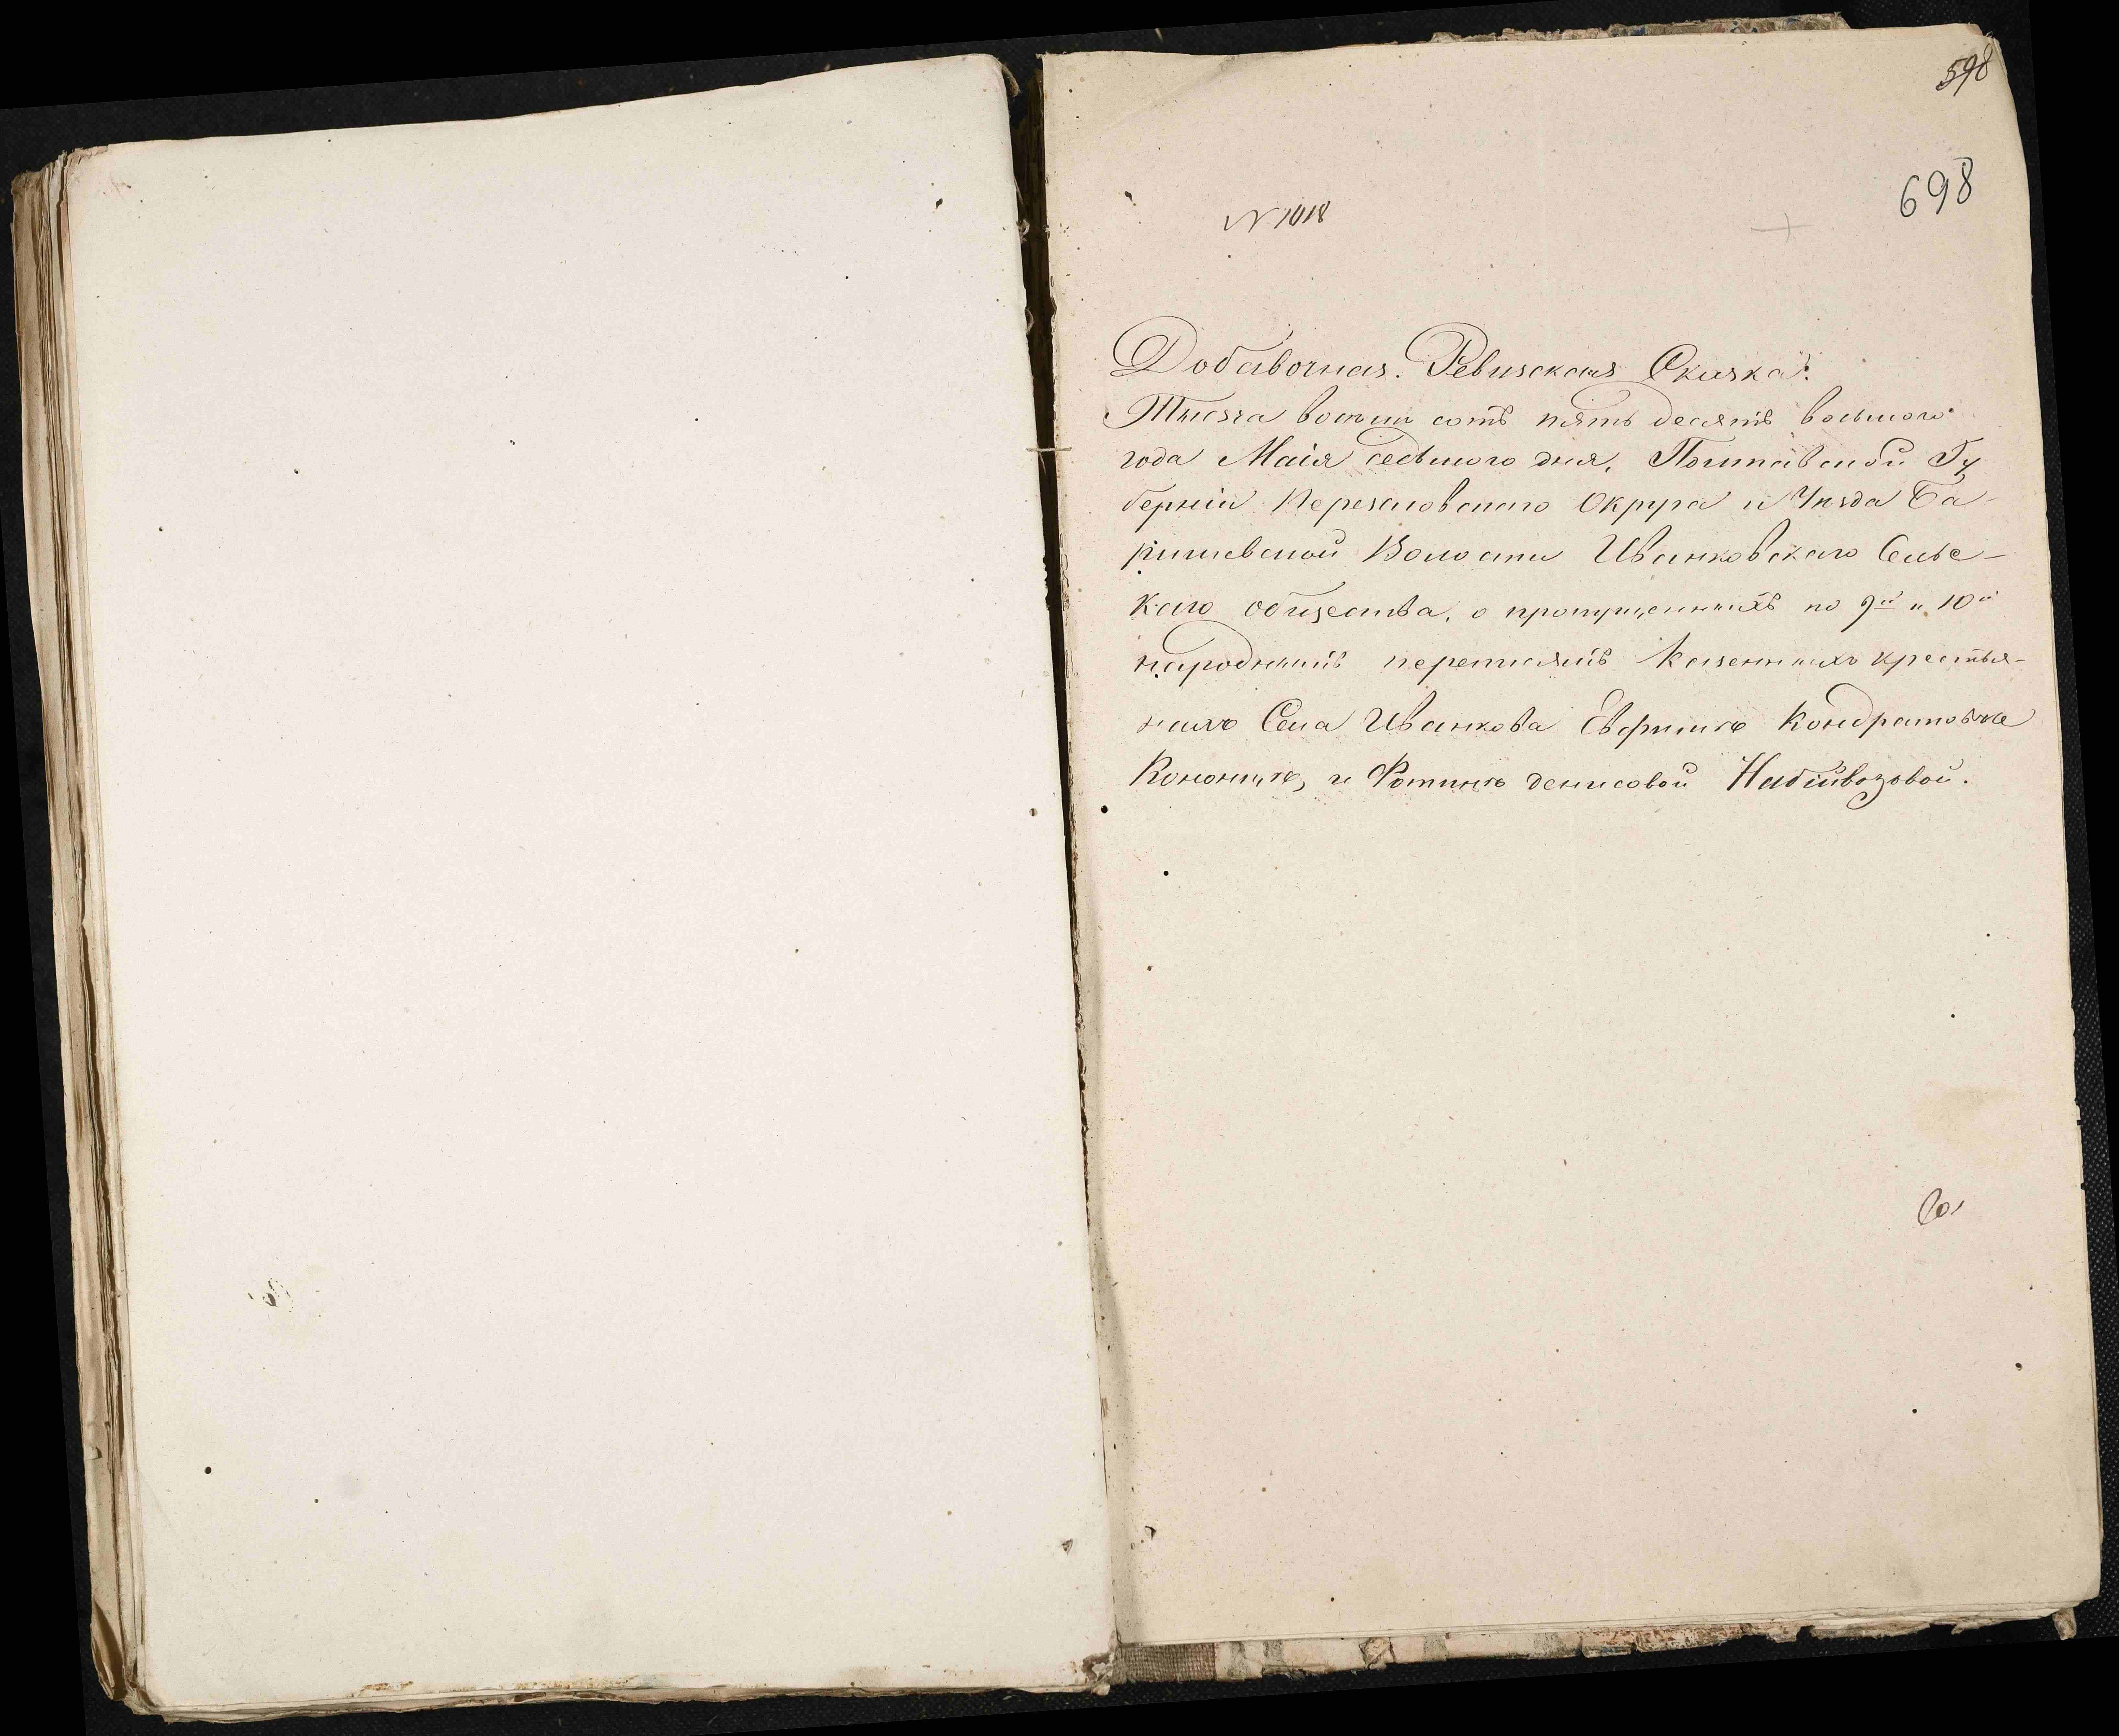 598
698
N 1018
Добавочная Ревизская Сказка.
Тысяча восемь сотъ пять десятъ восьмого
года Маія седьмого дня, Полтавской Гу
берніи Переяловского Округа и Уѣзда Ба-
ришевской Волости Иванковскаго Сельс-
каго общества, о пропущенныхъ по 9й и 10й
народнымъ переписямъ Казенныхъ крестья-
нахъ Села Иванкова Евфимѣ Кондратовѣ
и Фотинѣ Денисовой Набийвозовой.